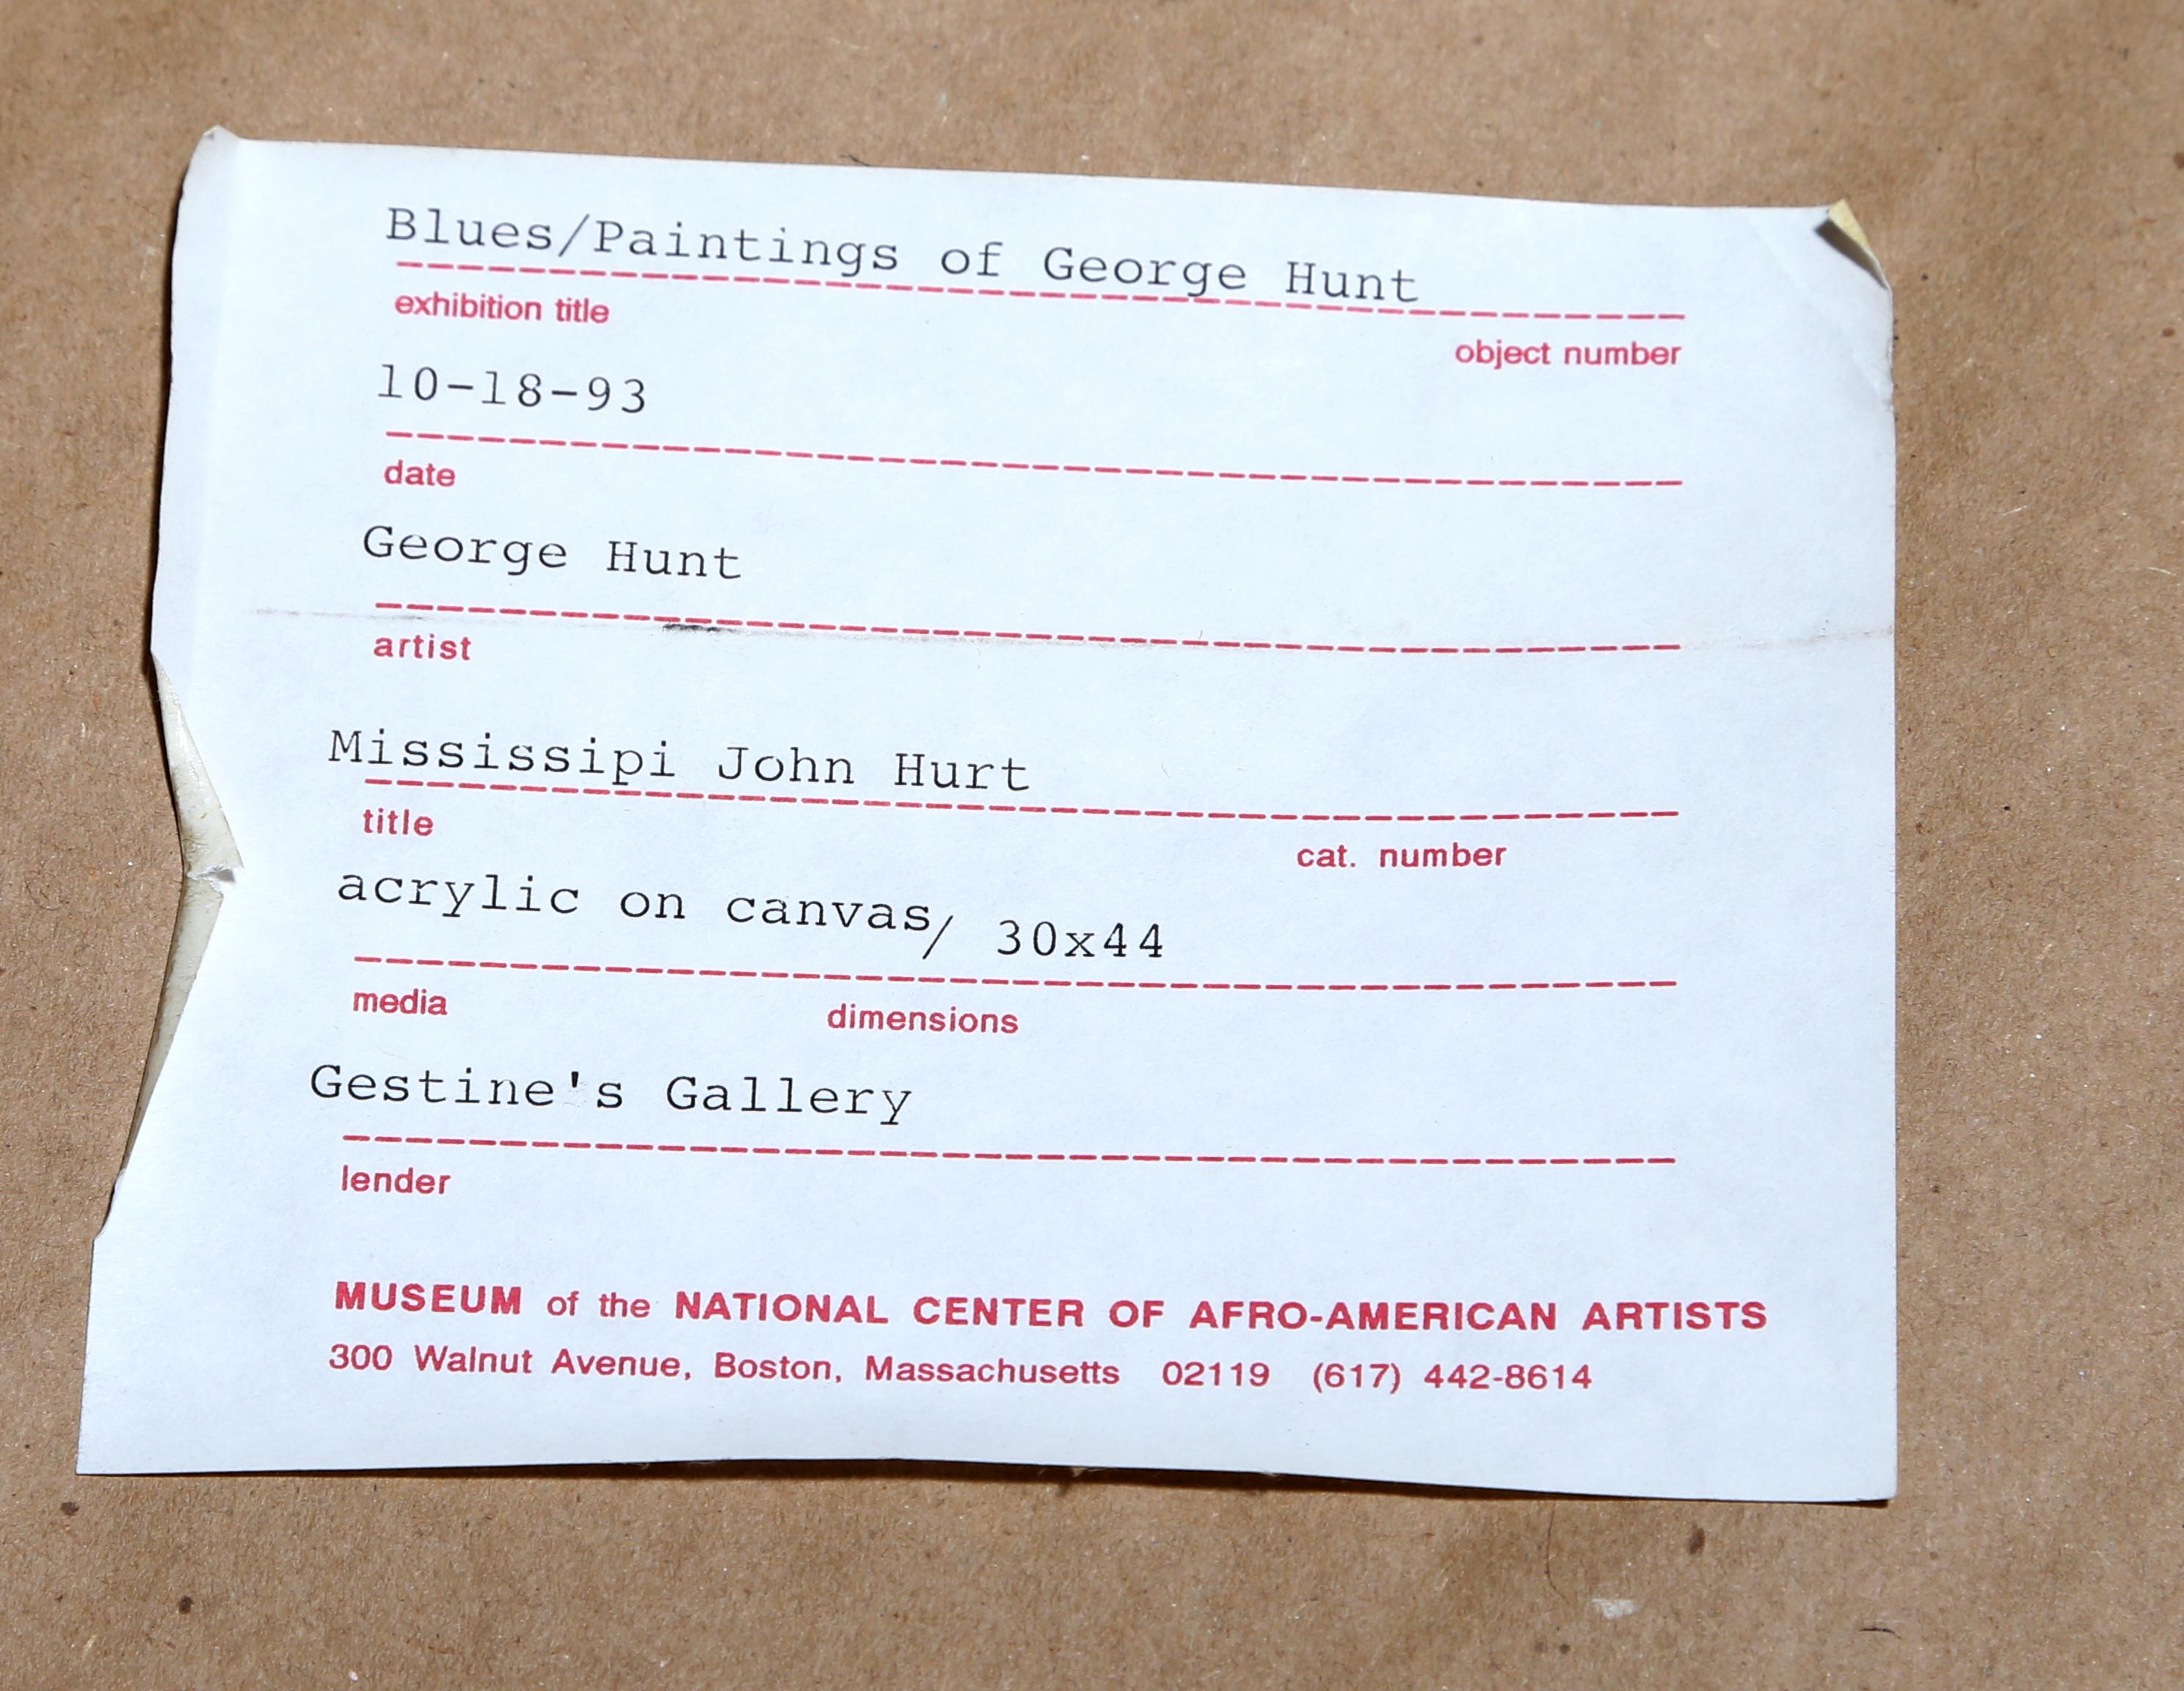 Blues/Paintings of George Hunt
exhibition title
object number
10-18-93
date
George Hunt
artist
Mississipi John Hurt
title
cat. number
acrylic on canvas/ 30x44
media dimensions
Gestine's Gallery
lender
MUSEUM of the NATIONAL CENTER OF AFRO-AMERICAN ARTISTS
300 Walnut Avenue, Boston, Massachusetts 02119 (617) 442-8614